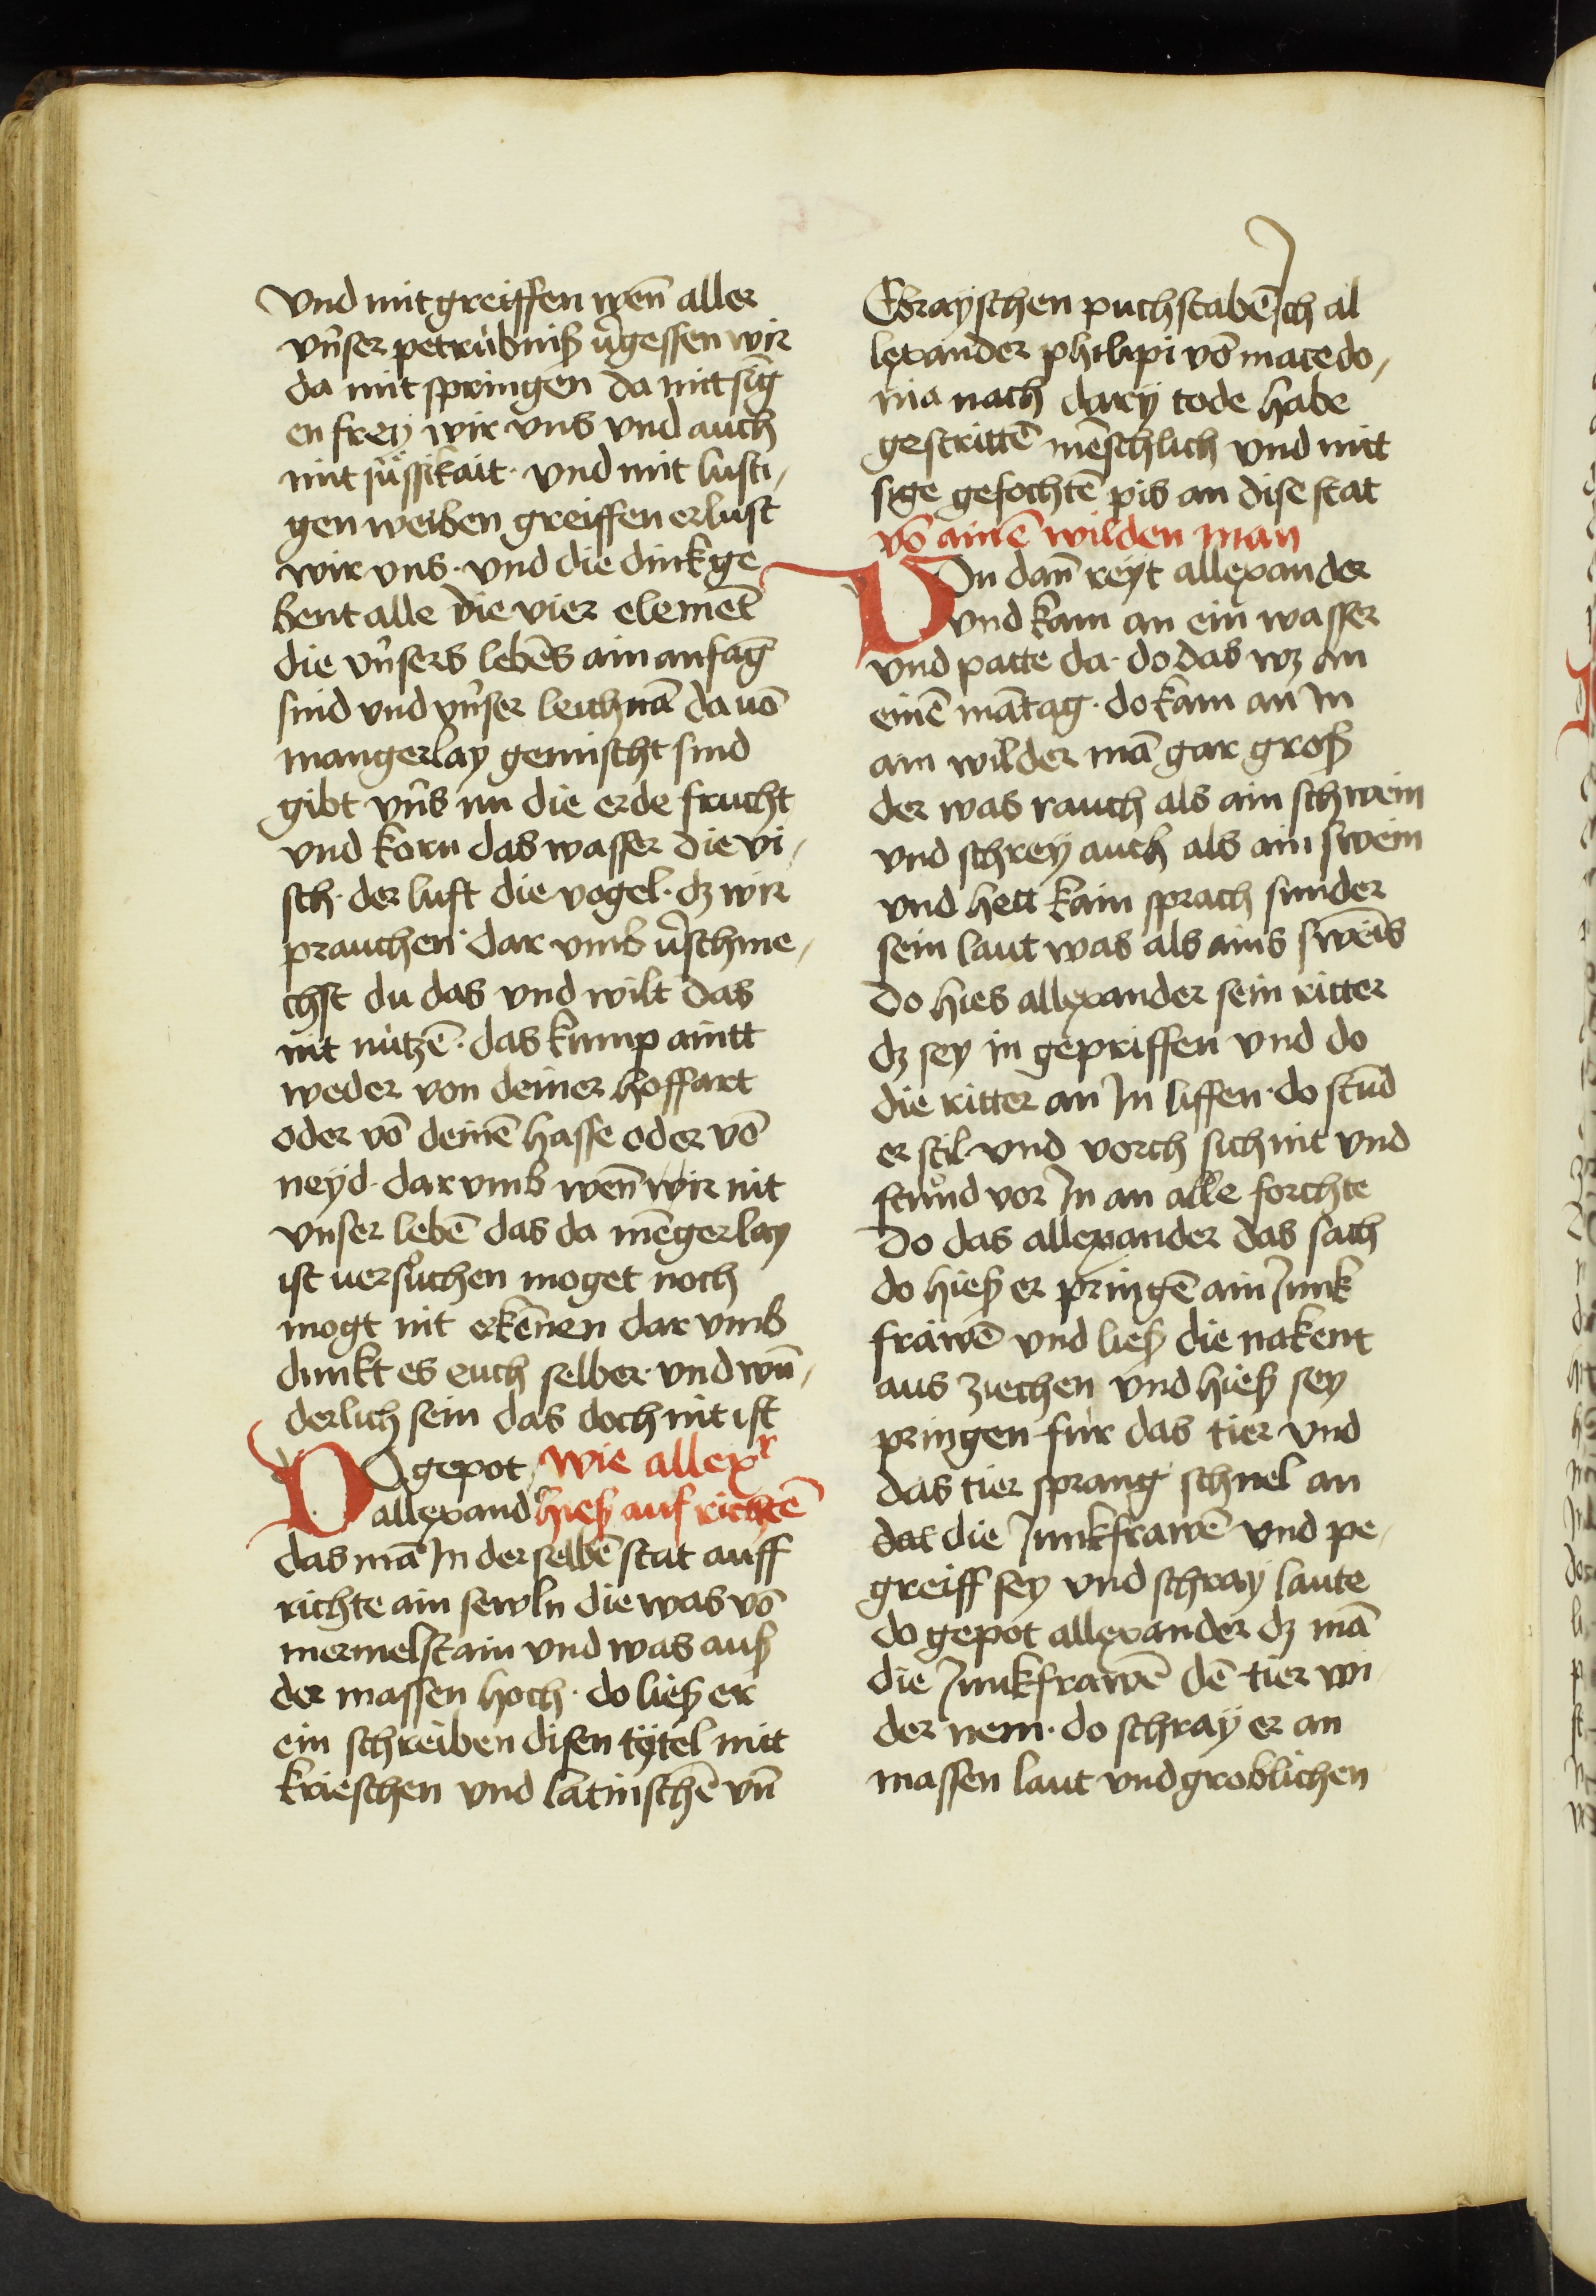 Vnd mit greiffen wen̄ aller
vn̄ser petrübniß v̾gessen wir
da mit springen da mit sīg
en frey wir vns vnd auch
mit süssikait · vnd mit lusti,
gen weiben greiffen erlust
wir vns · vnd die dink ge
bent alle die vier elemēt
die vn̄sers lebēs ain anfāg
sind vnd vn̄ser leichnā da uō
mangerlay gemischt sind
gibt vn̄s nu die erde frucht
vnd korn das wasser die vi,
sch · der luft die vogel · dz wir
prauchen · dar vmb v̾schme,
chst du das vnd wilt das
nit nützē · das kump aintt
weder von deiner hoffart
oder vō deinē hasse oder vō
neyd · dar vmb wen̄ wir nit
vnser lebē das da mēgerlay
ist uersůchen moget noch
mogt nit erkēnen dar vmb
dunkt es euch selber · vnd wū,
derlich sein das doch nit ist
DO gepot wie allexr
allexand hieß auf richtē
das mā In der selbē stat auff
richte ain sewln die was vō
mermelstain vnd was auß
der massen hoch · do ließ er
ein schreiben disen tÿtel mitt
krieschen vnd latinischē vn̄
Ebrayschen puchstabē Ich al
lexander philipi vō macedo,
nia nach dary tode habe
gestrittē mēschlich vnd mitt
sige gefochtē pis an dise stat
vō ainē wilden man
Von dan̄ reyt allexander
vnd kam an ein wasser
vnd patte da · do das wz an
einē mātag · do kam an In
ain wilder mā gar groß
der was rauch als ain schwein
vnd schrey auch als ain swein
vnd hett kain sprach sunder
sein laut was als ains swēis
Do hies allexander sein ritter
dz sey in gepriffen vnd do
die ritter an In liffen · do stūd
er stil · vnd vorch sich nit vnd
stůnd vor In an alle forchte
Do das allexander das sach
do hieß er pringē ain Junk
frawē vnd ließ die nakent
aus ziechen vnd hieß sey
pringen für das tier vnd
das tier sprang schnel an
dat die Junkfrawē vnd pe,
greiff sey vnd schray laute
do gepot allexander dz mā
die Junkfrawē dē tier wi,
der nem · do schray er an
massen laut vnd groblichen